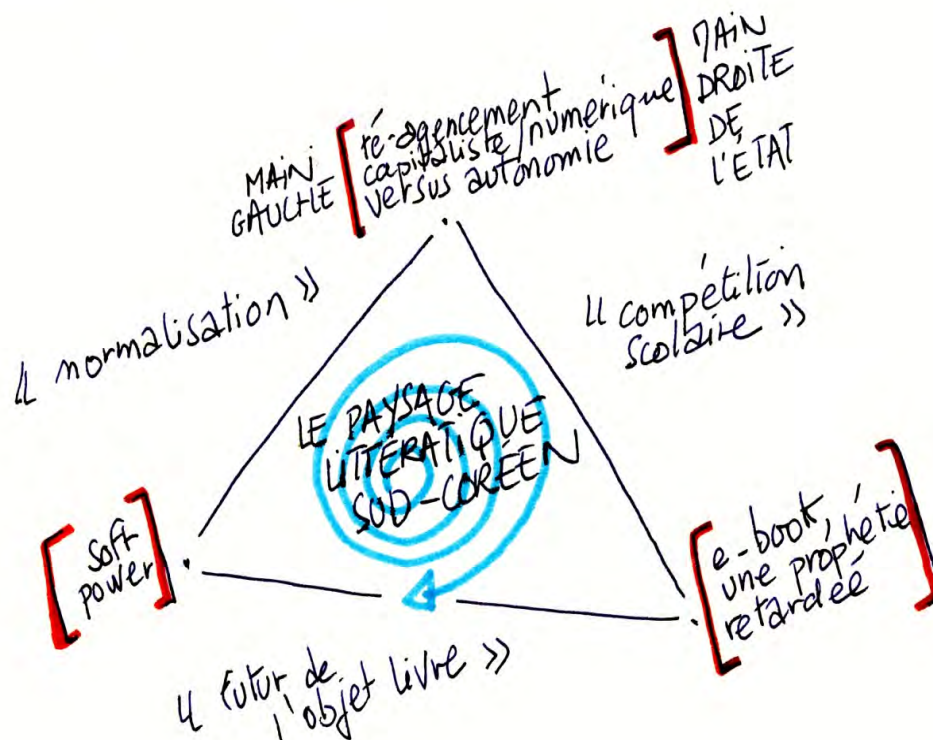 MAIN
GAUCHE
ré-agencement
capitaliste/numérique
versus autonomie
MAIN
DROITE
DE
L'ÉTAT
« normalisation »
« compétition
scolaire »
LE PAYSAGE
LITTÉRATIQUE
SUD-CORÉEN
soft
power
e-book,
une prophétie
retardéé
« futur de
l'objet livre »